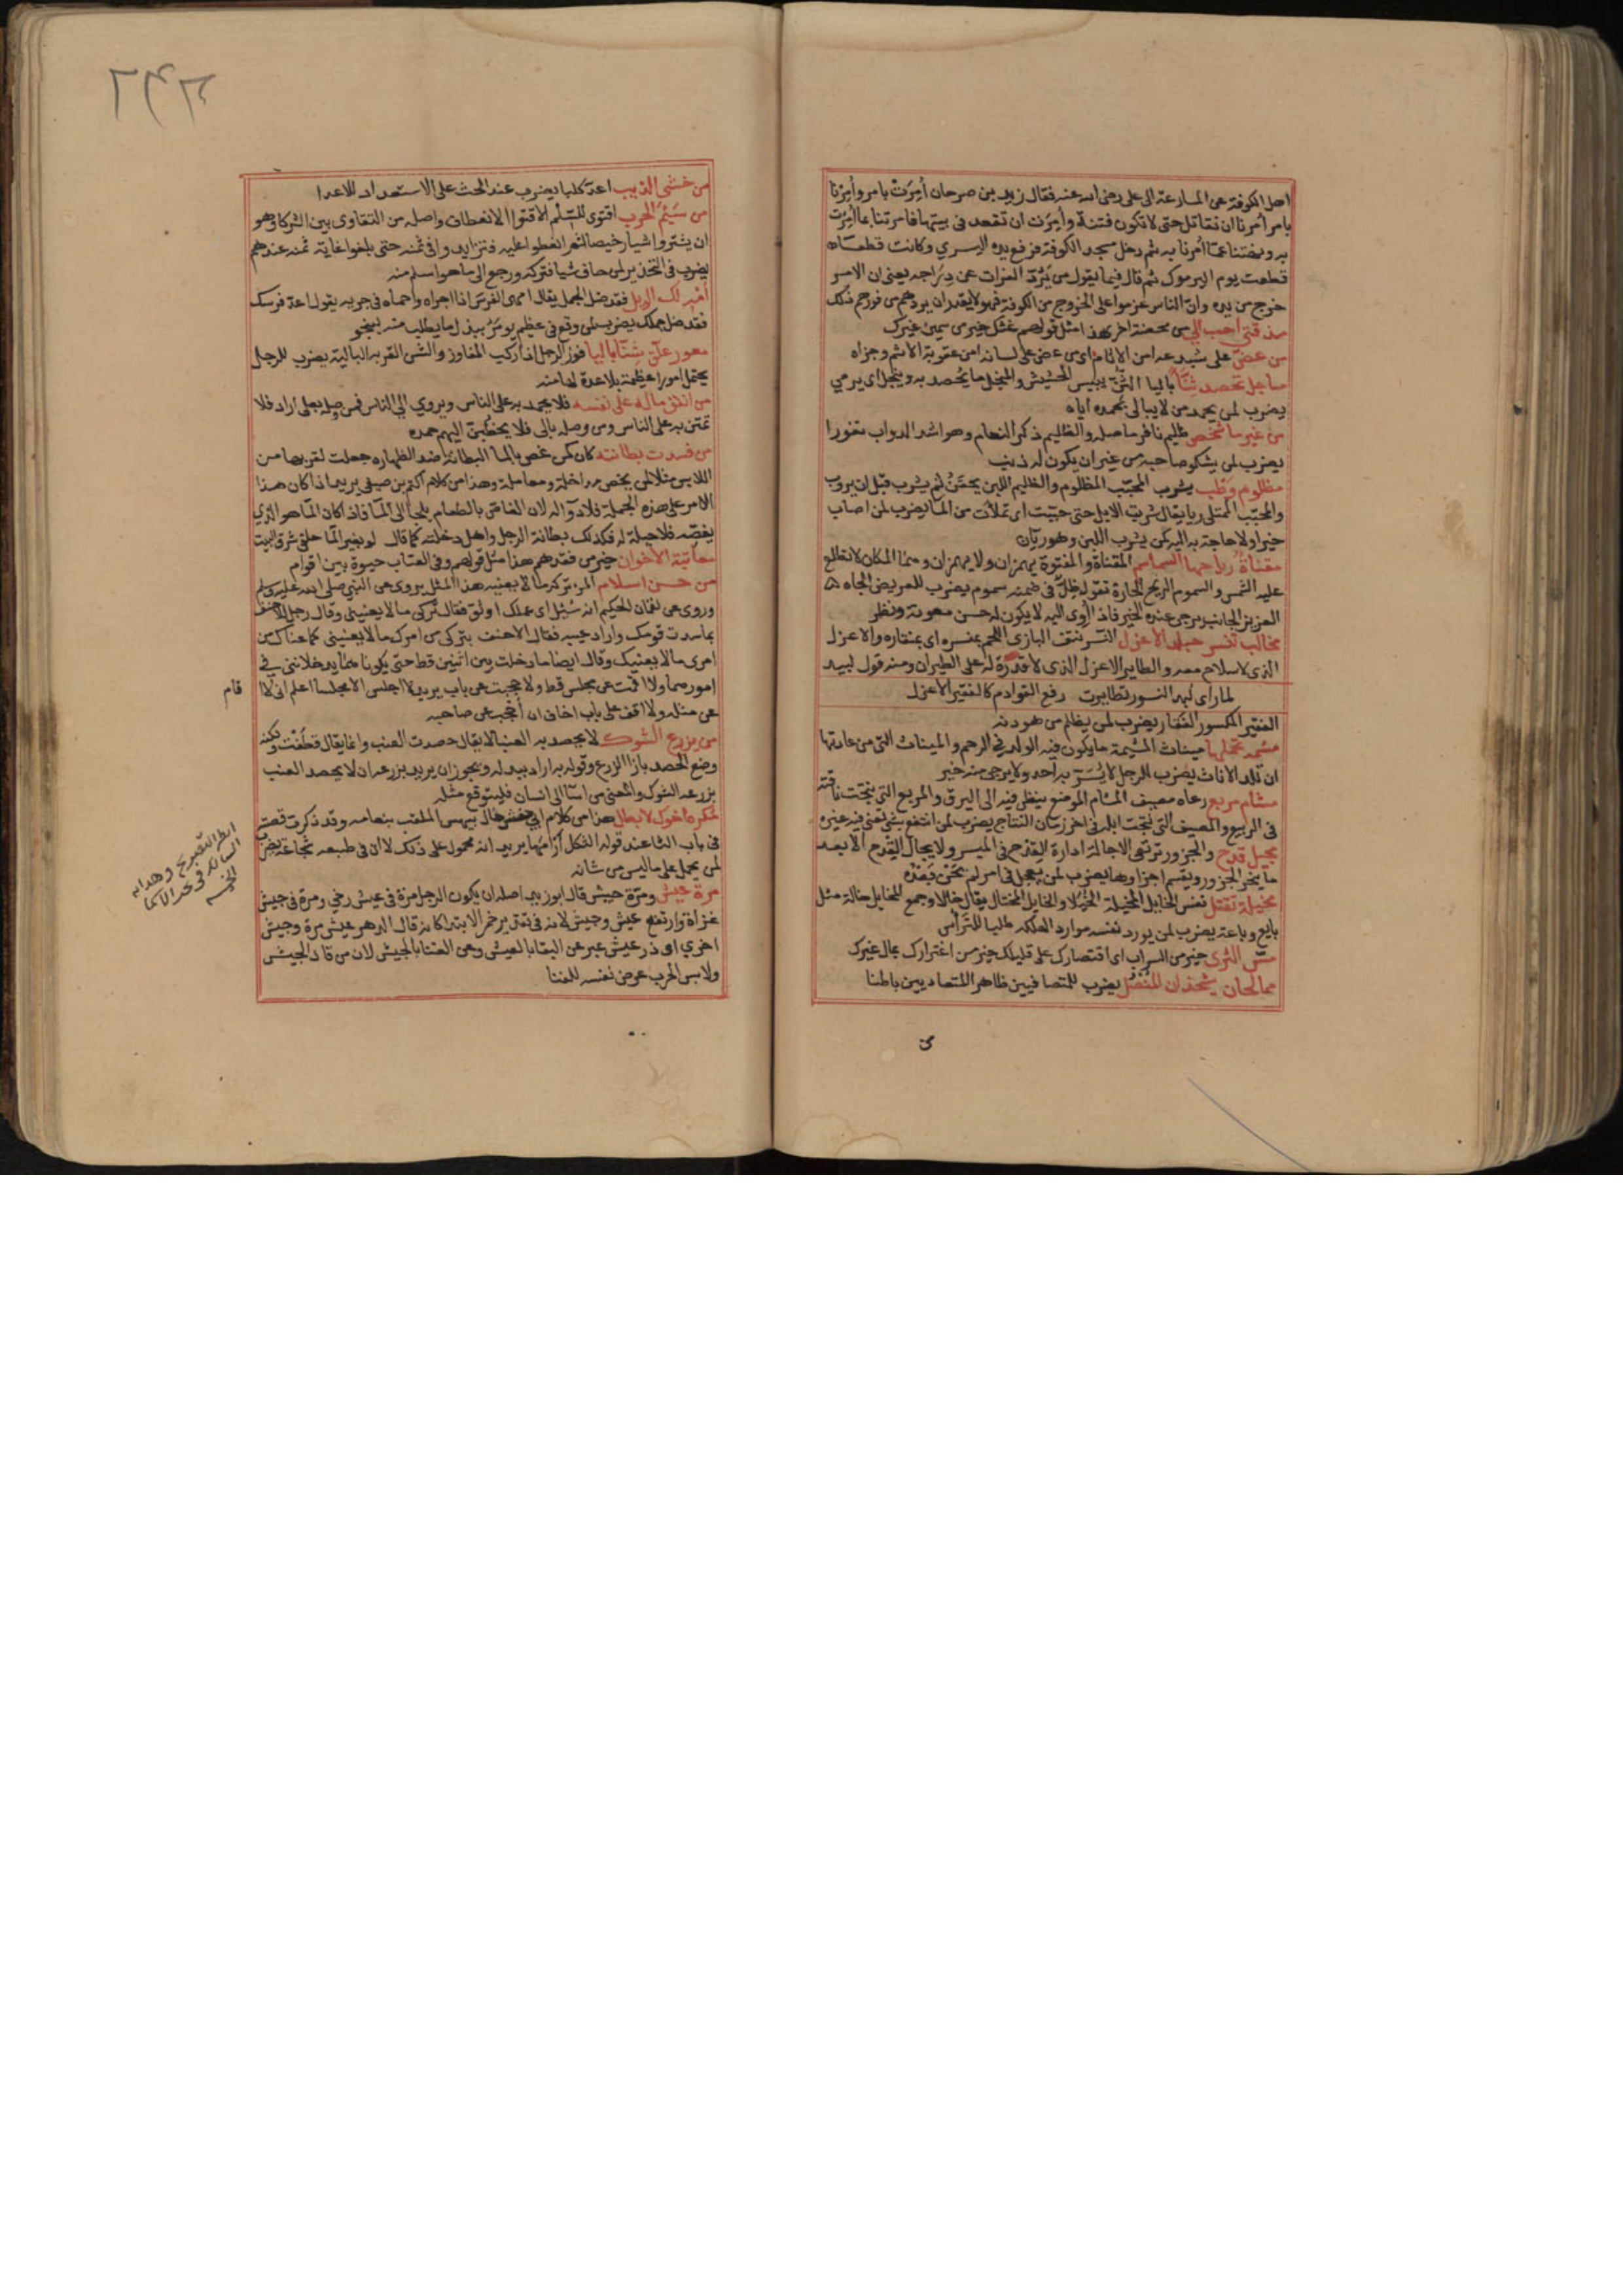 اهل الكوفة عن المسارعة الى على رضى الله عنه فقال زيد بن صوحان أمرت بامر وأمرنا
بامر أمرنا ان نقاتل حتى لا تكون فتنة وأمرت ان تقعد فى بيتها فامرتنا بما أمرت
به ونهتنا عما أمرنا به ثم دخل مسجد الكوفة فرفع يده اليسري وكانت قطعت
قطعت يوم اليرموك ثم قال فيما يقول من يرد الفرات عن دراجه يعنى ان الامر
خرج من يده وان الناس عزموا على الخروج من الكوفة فهو لا يقدر ان يردهم من فورهم ذلك
مذقتى احب الي من مخضة اخر هذا مثل قولهم غثك خير من سمين غيرك
من عض على شبدعه امن الاثام اى من عض على لسانه امن عقوبة الاثم وجزاه
مناجل تحصد ثنا باليا الثن يبيس الحشيش والمنجل ما يحصد به وينجل اى يرمي
يضرب لمن يحمد من لا يبالى بحمده اياه
من غير ما شخص ظليم نافر ما صله والظليم ذكر النعام وهو اشد الدواب نفورا
يضرب لمن يشكو صاحبه من غير ان يكون له ذنب
مظلوم وطب يشرب المحبب المظلوم والظليم اللبن يحقن ثم يشرب قبل ان يروب
والمحبب الممتلى ريا يقال شربت الابل حتى حببت اى تملأت من الما يضرب لمن اصاب
خيرا ولا حاجة به اليه كمن يشرب اللبن وهو ريان
مقناة رياحها السمايم المقناة والمقنوة يهمزان ولا يهمزان وهما المكان لا تطلع
عليه الشمس والسموم الريح الحارة نقول ظل فى ضمنه سموم يضرب للعريض الجاه
العزيز الجانب يرجى عنده الخير فاذا أوى اليه لا يكون له حسن معونة ونظر
مخالب تنسر جلد الاعزل النسر نتف البازى اللحم بمنسره اى بمنقاره والاعزل
الذى لا سلاح معه والطاير الاعزل الذى لا قدرة له على الطيران ومنه قول لبيد
لما راى لبد النسور تطايرت رفع القوادم كالفقير الاعزل
الفقير المكسور الفقار يضرب لمن يظلم من هو دونه
مشيمة تحملها ميناث المشيمة ما يكون فيه الولد فى الرحم والميناث التى من عادتها
ان تلد الاناث يضرب للرجل لا يسر به احد ولا يرجى منه خير
مشام مربع رعاه مصيف المشام الموضع ينظر فيه الى البرق والمربع التى نتجت ناقته
فى الربيع والمصيف التى نتجت ابله فى اخر زمان النتاج يضرب لمن انتفع بشى تعنى فيه غيره
مجيل قدح والجزور ترتعى الاجالة ادارة القدح فى الميسر ولا يجال القدح الا بعد
ما ينحر الجزور ويقسم اجزاوها يضرب لمن يعجل فى امر لم يحن بعد
مخيلة تقتل نفس الخايل المخيلة الخيلا والخايل المختال يقال خال لا وجمع المخايل خالة مثل
بايع وباعة يضرب لمن يورد نفسه موارد الهلكة طلبا للتراس
مس الثرى خير من السراب اى اقتصارك على قليلك خير من اغترارك بمال غيرك
ممالحان يشحذان المنصل يضرب للمتصافيين ظاهرا المتعاديين باطنا
من
من خشى الذيب اعد كلبا يضرب عند الحث على الاستعداد للاعدا
من سيم الحرب اقتوى للسلم الاقتوا الانعطاف واصله من التقاوى بين الشركا وهو
ان يشتروا شيا رخيصا ثم انعطفوا عليه فتزايدوا فى ثمنه حتى بلغوا غاية ثمنه عندهم
يضرب فى التحذير لمن خاف شيا فتركه ورجع الى ما هو اسلم منه
امهر لك الويل فقد ضل الجمل يقال امهى الفرس اذا اجراه واحماه فى جريه يقول اعد فرسك
فقد ضل جملك يضرب لمن وقع فى عظيم يومر ببذل ما يطلب منه لينجو
مفوز علق شنا باليا فوز الرجل اذا ركب المفاوز والشن القربه البالية يضرب للرجل
يحتمل امورا عظيمة بلا عدة لها منه
من انفق ماله على نفسه فلا يحمد به على الناس ويروي الى الناس فمن وصله بعلى اراد فلا
تمتن به على الناس ومن وصله بالى فلا يخطبن اليهم حمده
من فسدت بطانته كان كمن غص بالما البطانة ضد الظهاره جعلت لقربها من
اللابس مثلا لمن يختص مداخلة ومعاملة وهذا من كلام اكثم بن صيفى يريد اذا كان هذا
الامر على هذه الجملة فلا دوا له لان الغاص بالطعام يلجا الى الما فاذا كان الما هو الذي
يغصه فلا حيلة له فكذلك بطانة الرجل واهل دخلته كما قال لو بغير الما حلقى شرق البيت
معاتبة الاخوان خير من فقدهم هذا مثل قولهم وفى العتاب حيوة بين اقوام
من حسن اسلام المرء تركه ما لا يعنيه هذا المثل يروى عن النبى صلى الله عليه وسلم
وروى عن لقمان الحكيم انه سئل اى عملك اوثق فقال تركى ما لا يعنينى وقال رجل للاحنف
بما سدت قومك واراد عيبه فقال الاحنف بتركى من امرك ما لا يعنينى كما عناك من
امرى ما لا يعنيك وقال ايضا ما دخلت بين اثنين قط حتى يكونا هما يدخلاننى فى
امورهما ولا اقمت عن مجلس قط ولا حجبت عن باب يريد لا اجلس الا مجلسا اعلم انى لا اقام
عن مثله ولا اقف على باب اخاف ان احجب عن صاحبه
من يزرع الشوك لا يحصد به العنب لا يقال حصدت العنب وانما يقال قطفت ولكنه
وضع الحصد بازا الزرع وقوله به اراد ببدله ويجوز ان يريد بزرعه ان لا يحصد العنب
بزرعه الشوك والمعنى من اسا الى انسان فليتوقع مثله
مكره اخوك لا بطل هذا من كلام ابى حنش خال بيهس الملقب بنعامه وقد ذكرت قصته
فى باب الثا عند قوله الثكل ارامها يريد انه محمول على ذلك لا ان فى طبعه شجاعة يضرب
لمن يحمل على ما ليس من شانه
مرة عيش ومرة جيش قال ابو زيد اصله ان يكون الرجل مرة فى عيش رخي ومرة فى جيش
غزاة وارتفع عيش وجيش لانه فى تقدير خبر الابتدا كانه قال الدهر عيش مرة وجيش
اخري اى ذو عيش عبر عن البقا بالعيش وعن الفنا بالجيش لان من قاد الجيش
ولابس الحرب عرض نفسه للفنا